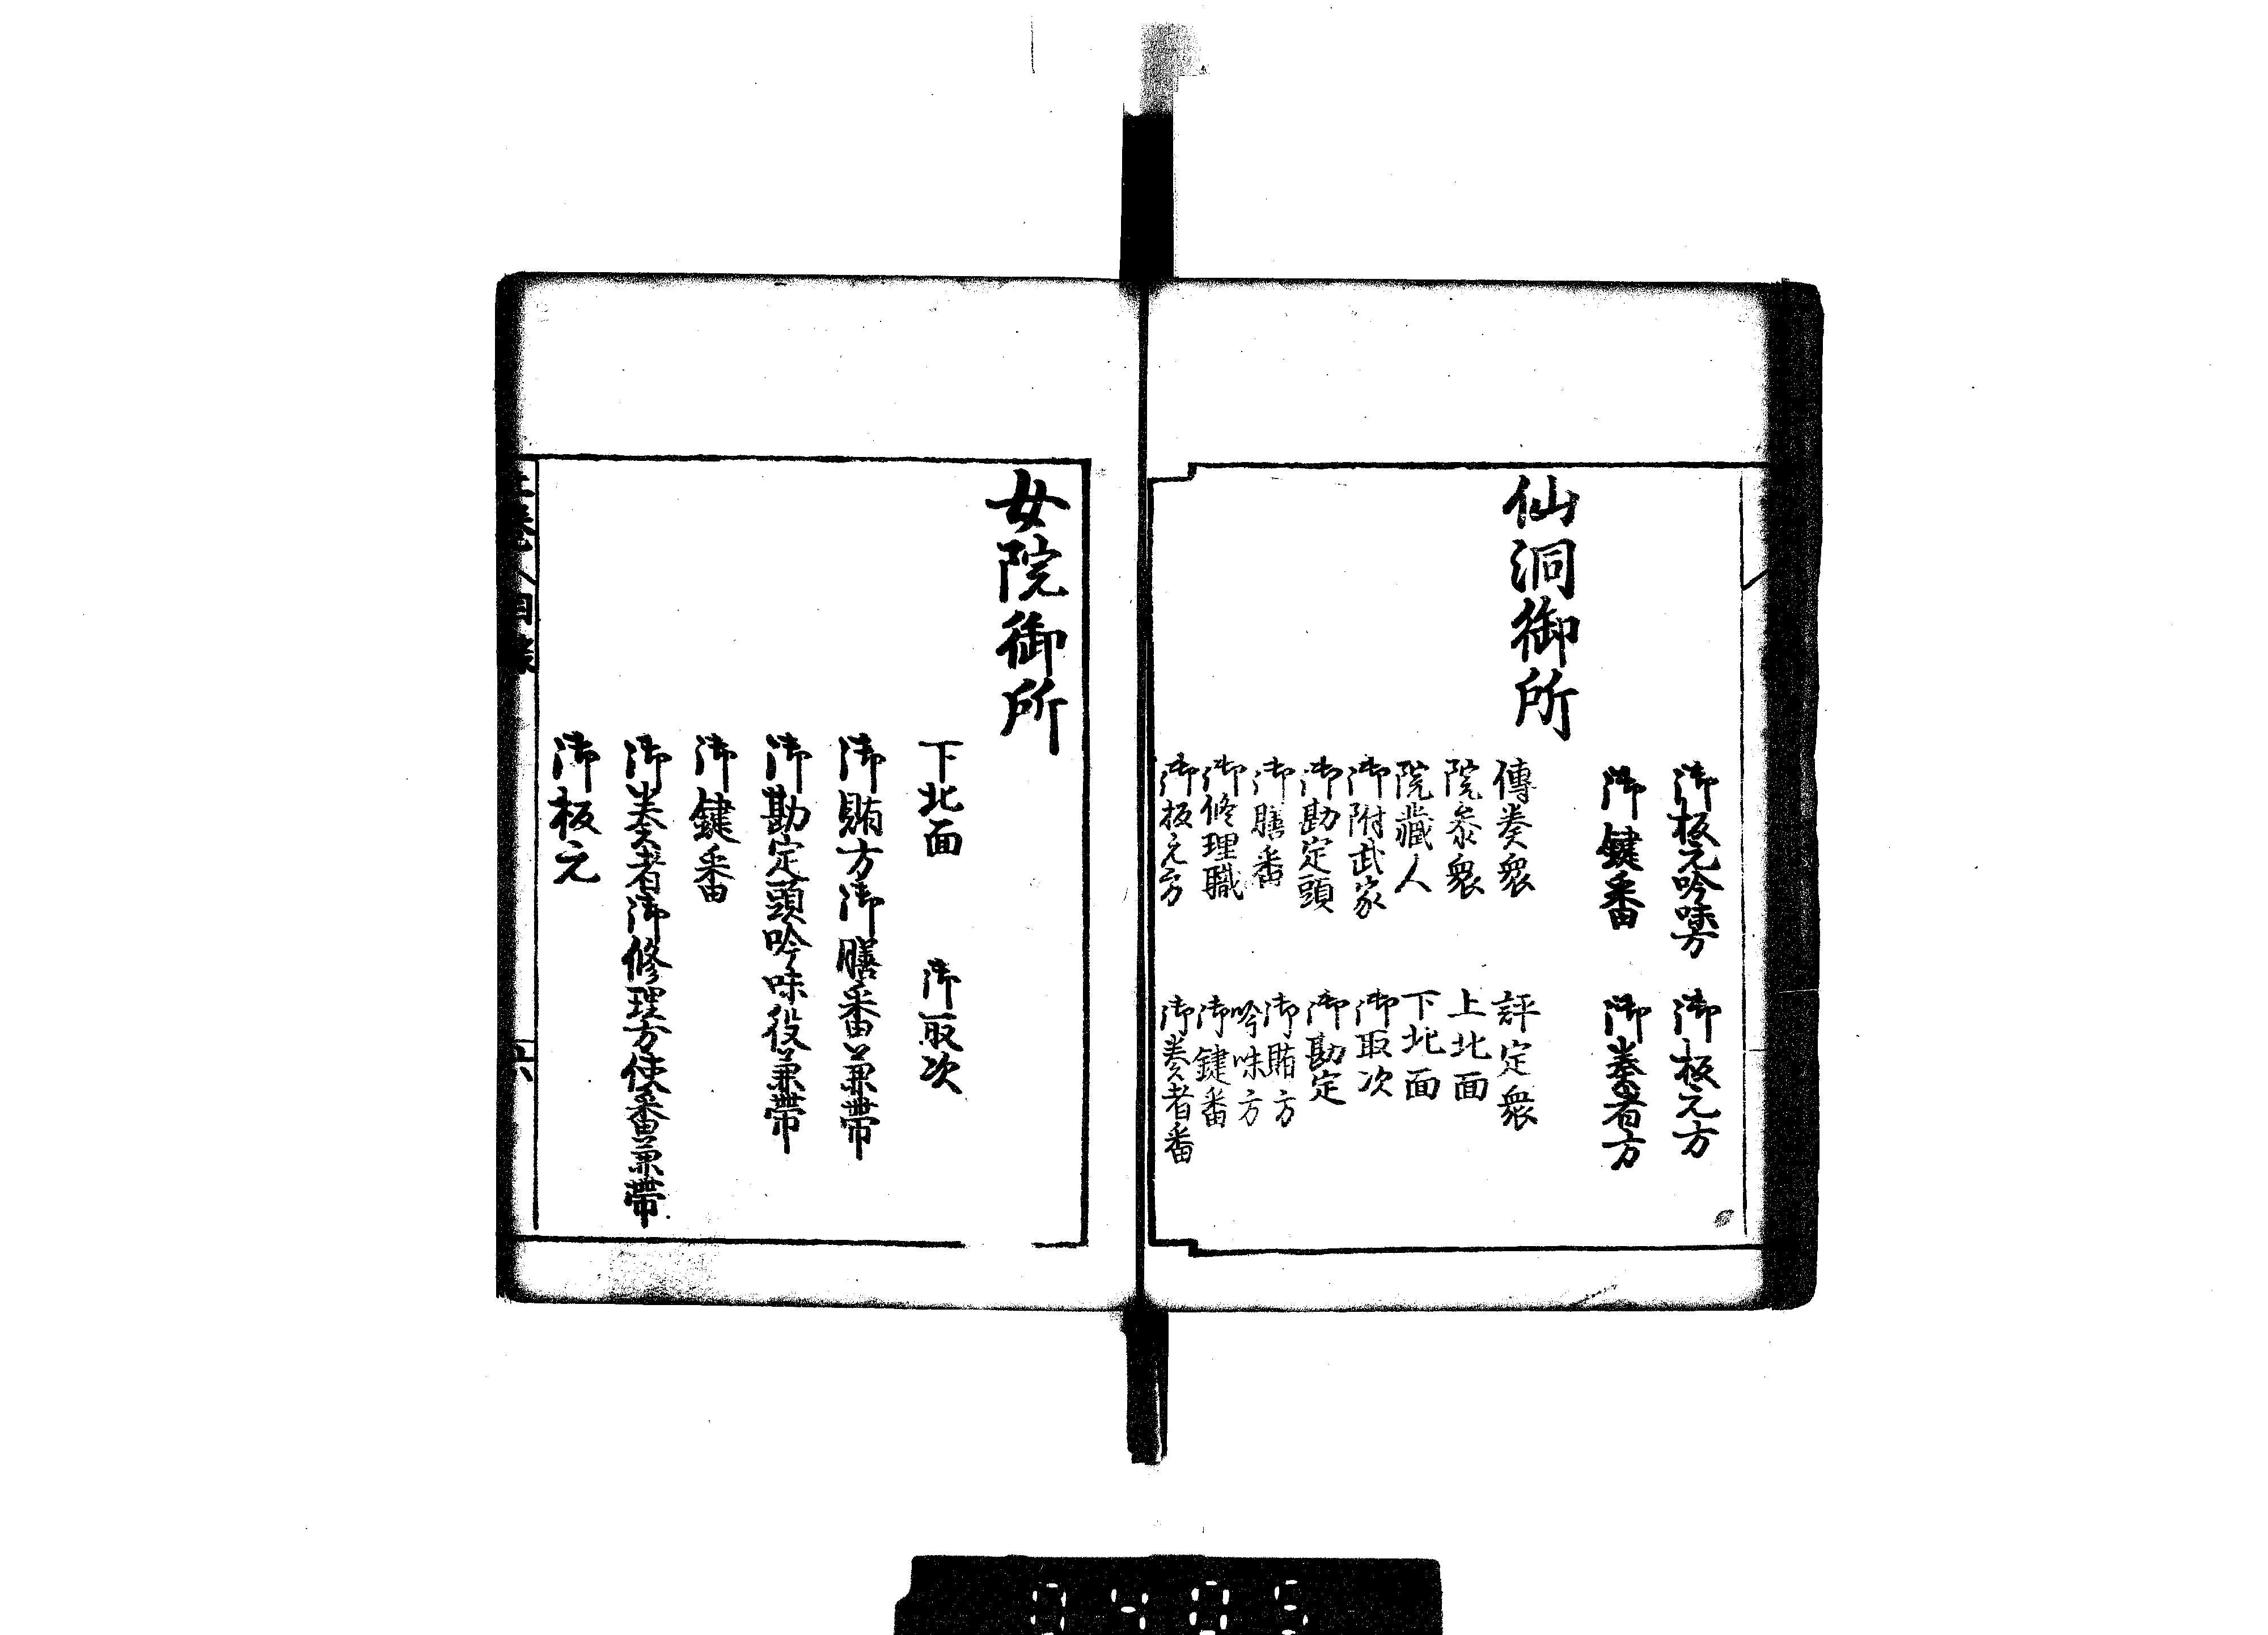 御板元吟味方　御板元方
御鍵番　御奏者方
仙洞御所
傳奏衆　評定衆
院参衆　上北面
院蔵人　下北面
御附武家　御取次
御勘定頭　御勘定
御膳番　御賄方
吟味方
御修理職　御鍵番
御板元方　御奏者番
女院御所
下北面　御取次
御賄方御膳番兼帯
御勘定頭吟味役兼帯
御鍵番
御奏者御修理方使番兼帯
御板元